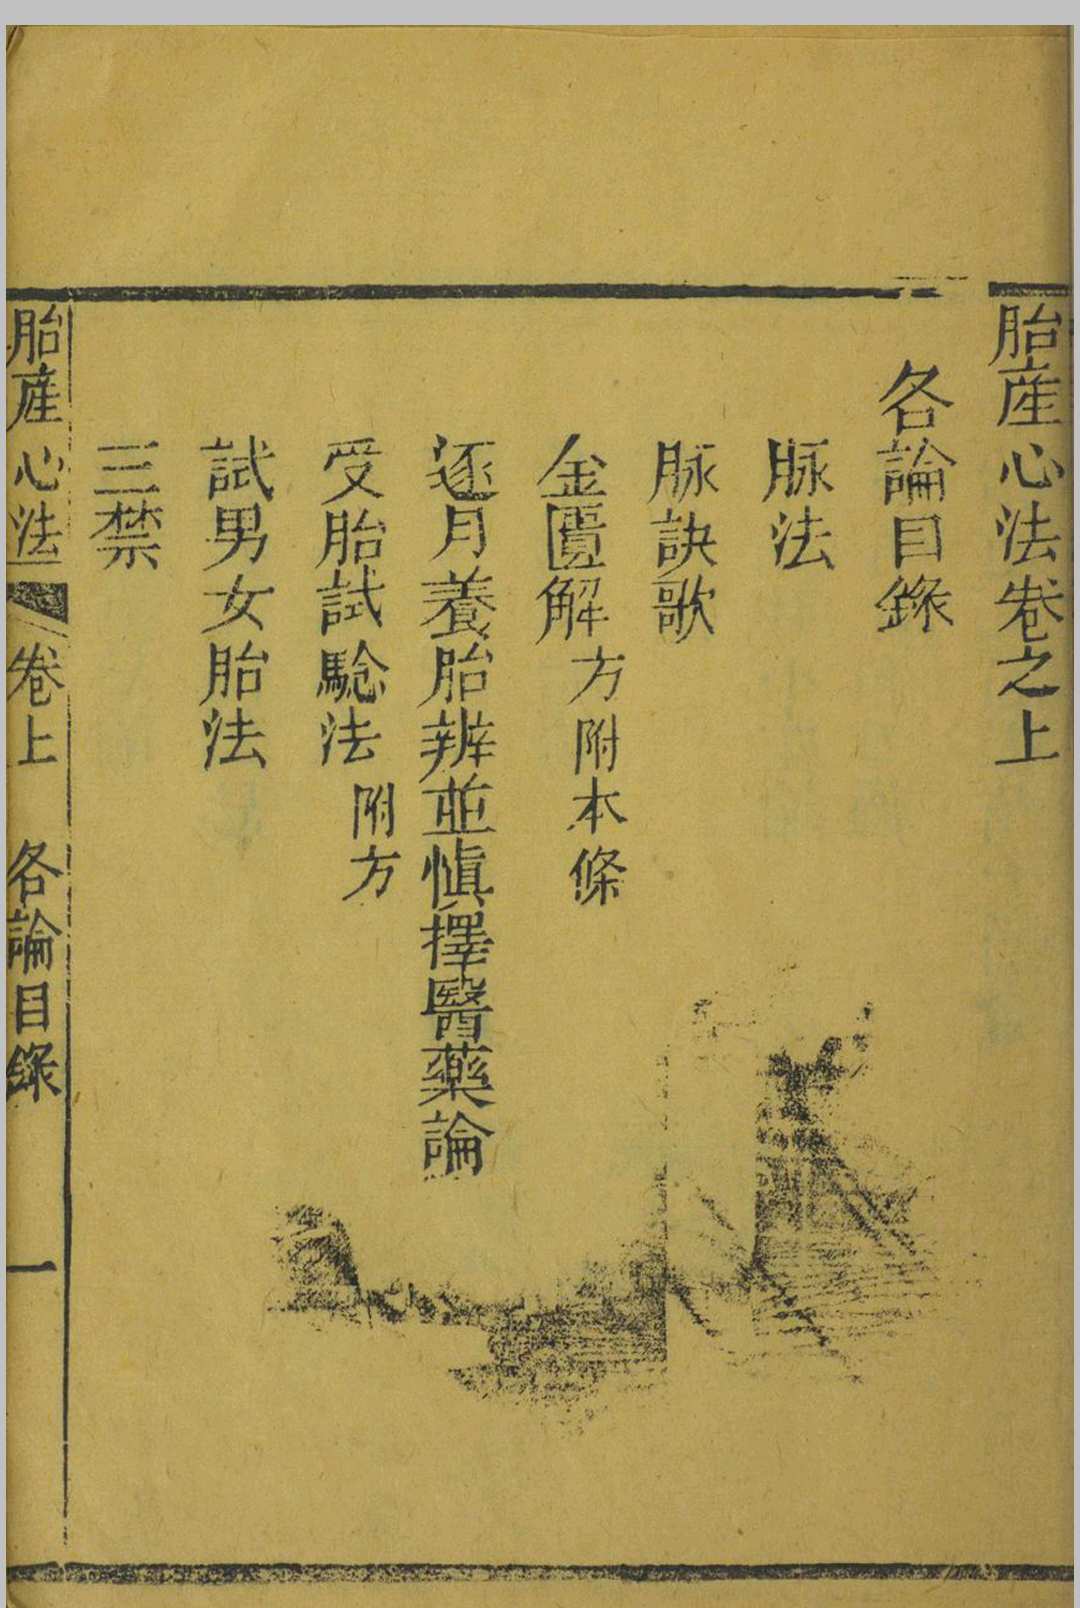 胎產心法卷之上
各論目錄
脉法
脉訣歌
金匱解方附本條
逐月養胎辨並慎擇醫藥論
受胎試驗法附方
試男女胎法
三禁
胎產心法 卷上 各論目錄 一